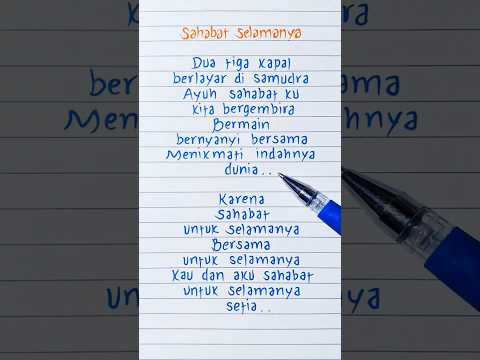 Sahabat Selamanya
Dua tiga kapal
berlayar di samudra
Ayuh sahabat ku
kita bergembira
Bermain
bernyanyi bersama
Menikmati indahnya
dunia...
Karena
sahabat
untuk selamanya
Bersama
untuk selamanya
Kau dan aku sahabat
untuk selamanya
setia..